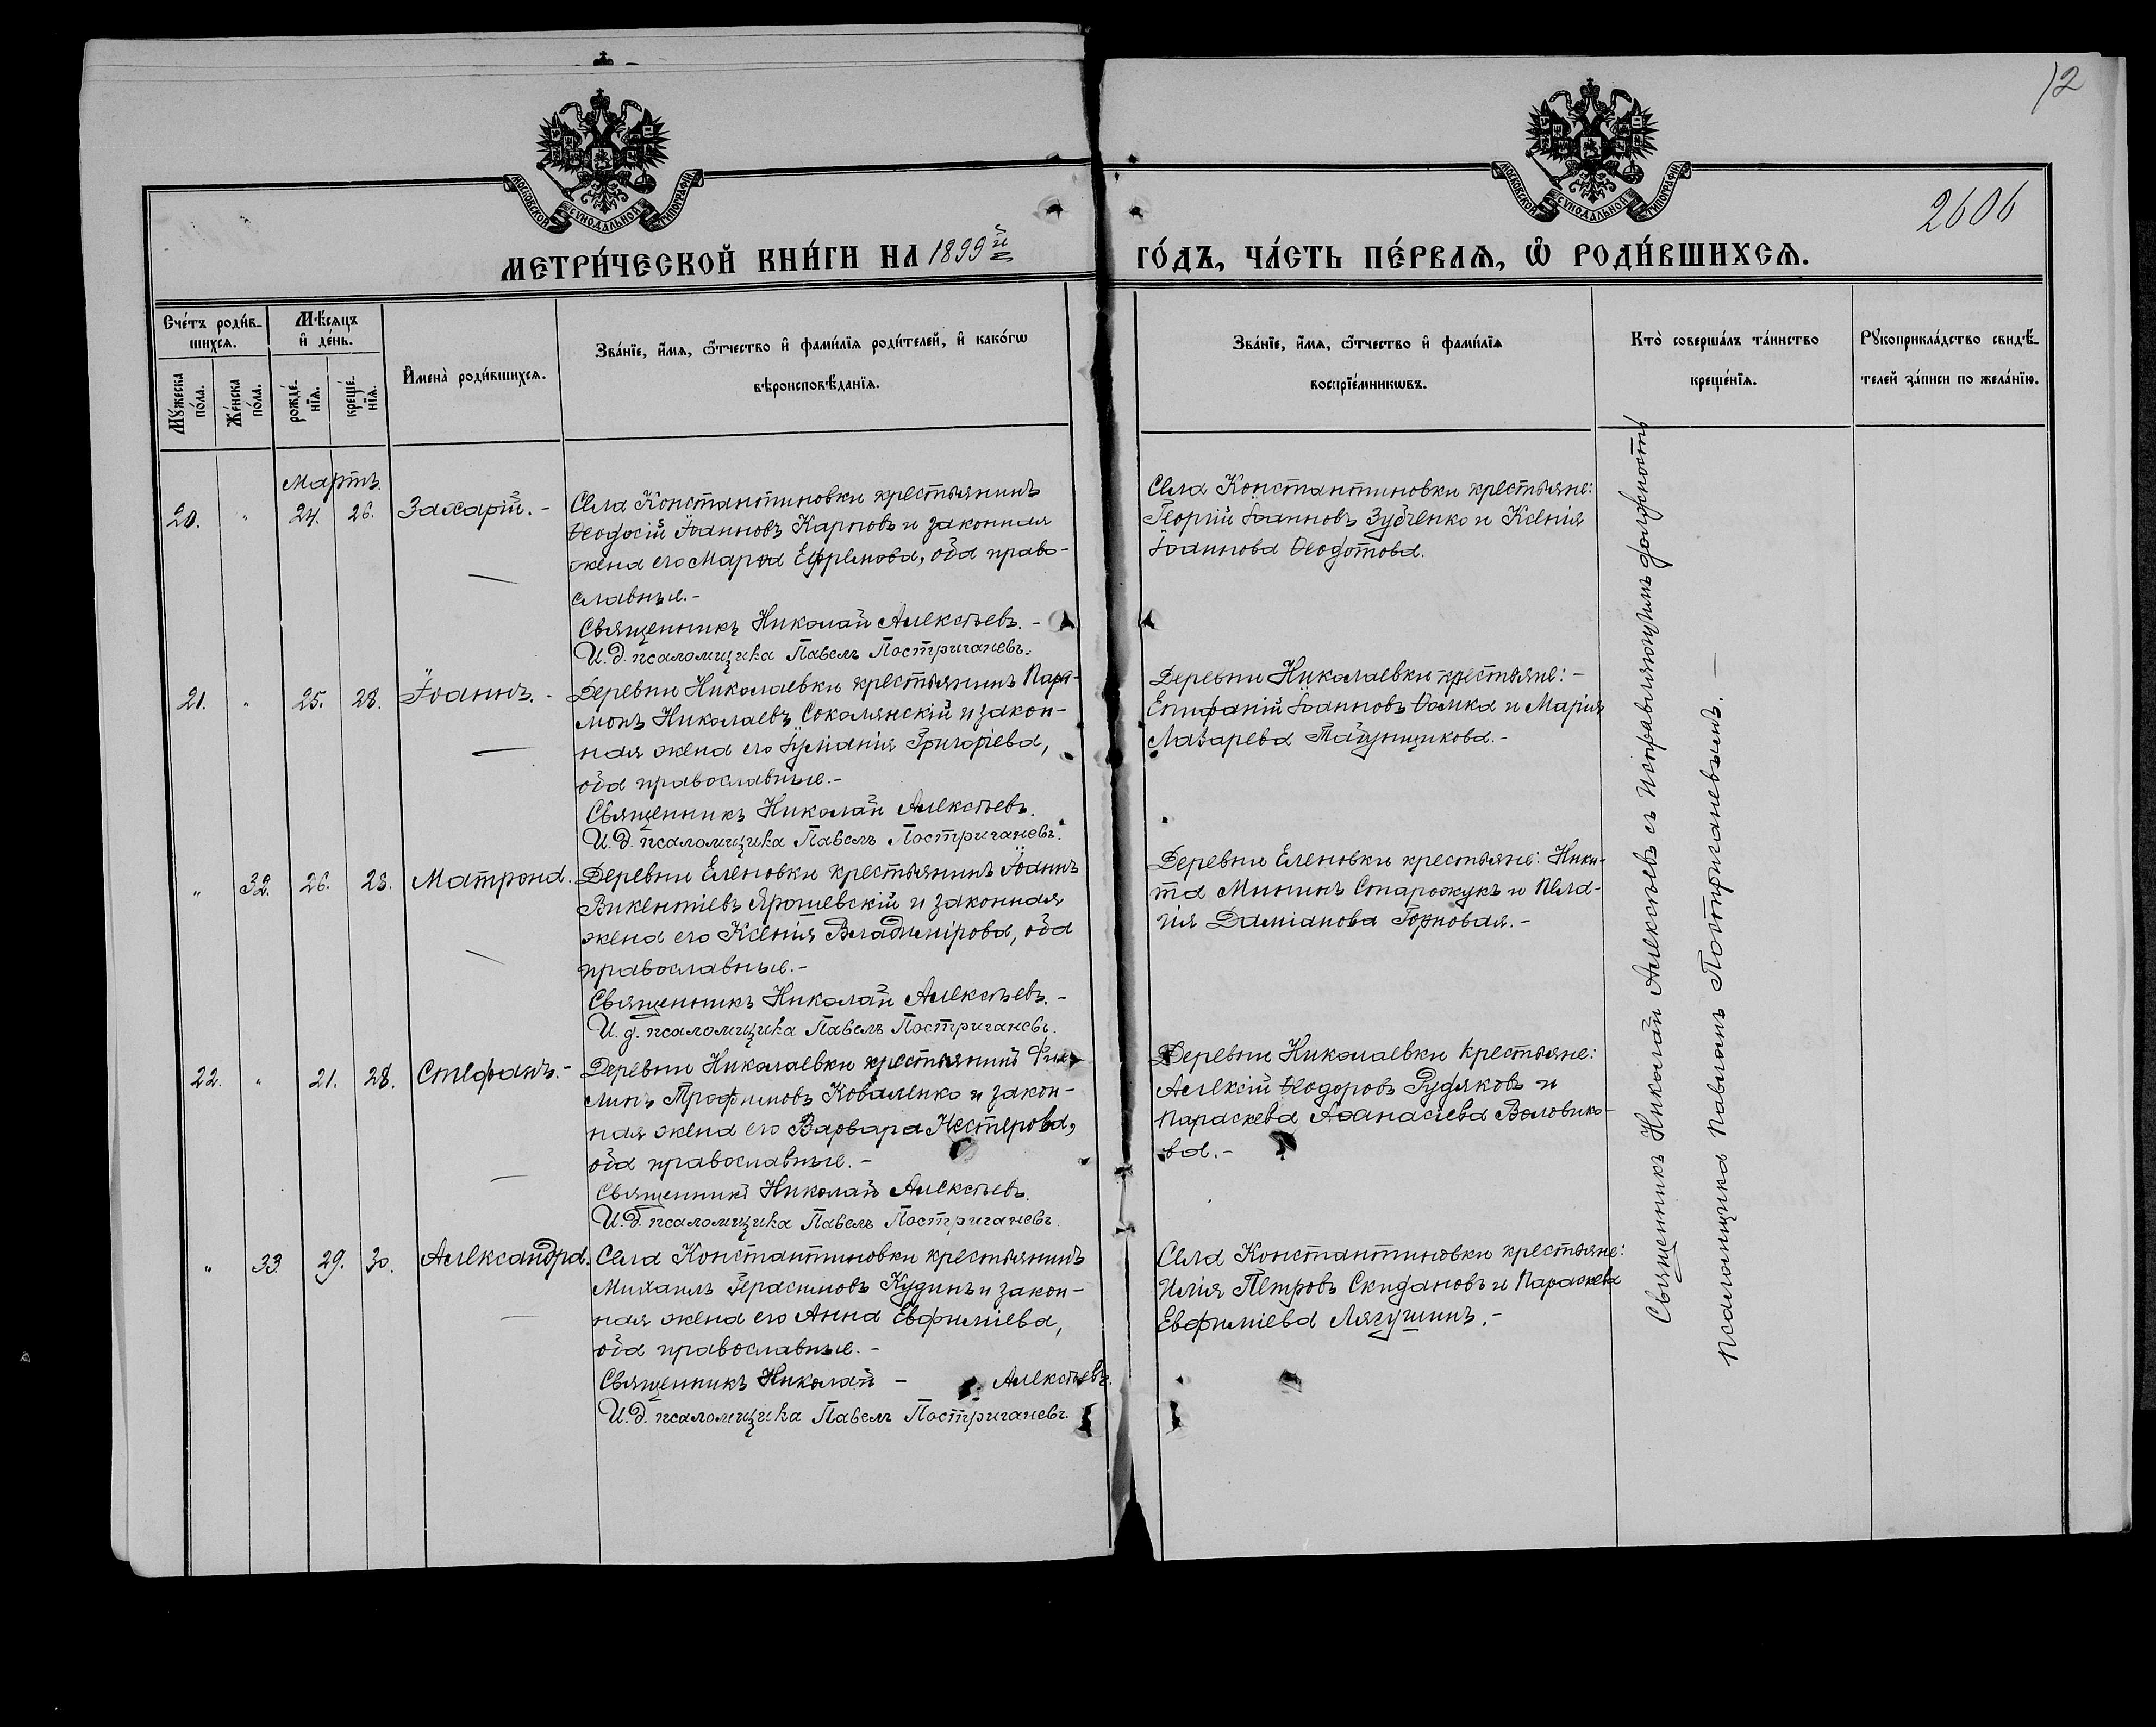 12
2606
МОСКОВСКОЙ СУНОДАЛЬНОЙ ТИПОГРАФІИ
МОСКОВСКОЙ СУНОДАЛЬНОЙ ТИПОГРАФІИ
МЕТРИ́ЧЕСКОЙ КНИ́ГИ НА 1899й
ГО́ДЪ, ЧА́СТЬ ПЕ́РВАѦ, Ѡ҆ РОДИ́ВШИХСѦ.
Сче́тъ роди́в-
шихсѧ.
Мꙋ́жеска
по́ла.
Же́нска
по́ла.
Мѣ́сѧцъ
и҆ де́нь.
рожде́-
нїѧ.
креще́-
нїѧ.
И҆мена̀ роди́вшихсѧ.
Зва́нїе, и҆́мѧ, ѻ҆́тчество и҆ фами́лїѧ роди́телей, и҆ како́гѡ
вѣроисповѣ́данїѧ.
Зва́нїе, и҆́мѧ, ѻ҆́тчество и҆ фами́лїѧ
воспрїе́мникѡвъ.
Кто̀ соверша́лъ та́инство
креще́нїѧ.
Рꙋкоприкла́дство свидѣ́-
телей за́писи по жела́нїю.
Мартъ.
20. " 24. 26. Захарій. -
Села Константиновки крестьянинъ
Ѳеодосій Іоанновъ Карповъ и законная
жена его Марѳа Ефремова, оба право-
славные. -
Священникъ Николай Алексѣевъ. -
И. д. псаломщика Павелъ Постригачевъ.
Села Константиновки крестьяне:
Георгій Іоанновъ Зубченко и Ксенія
Іоаннова Ѳеодотова.
21. " 25. 28. Іоаннъ. -
Деревни Николаевки крестьянинъ Пара-
монъ Николаевъ Соколянскій и закон-
ная жена его Іуліанія Григоріева,
оба православные. -
Священникъ Николай Алексѣевъ.
И. д. псаломщика Павелъ Постригачевъ.
Деревни Николаевки крестьяне: -
Епифаній Іоанновъ Ѳомка и Марія
Лазарева -
" 32. 26. 28. Матрона.
Деревни Еленовки крестьянинъ Іоаннъ
Викентіевъ Ярошевскій и законная
жена его Ксенія Владимірова, оба
православные. -
Священникъ Николай Алексѣевъ. -
И. д. псаломщика Павелъ Постригачевъ.
Деревни Еленовки крестьяне: Ники-
та Мининъ Старожукъ и Пела-
гія Даміанова Горновая. -
22. " 21. 28. Стефанъ. -
Деревни Николаевки крестьянинъ Фили-
монъ Трофимовъ Коваленко и закон-
ная жена его Варвара Нестерова,
оба православные. -
Священникъ Николай Алексѣевъ.
И. д. псаломщика Павелъ Постригачевъ.
Деревни Николаевки крестьяне:
Алексій Ѳеодоровъ Рудяковъ и
Параскева Аѳанасіева Воловико-
ва. -
" 33. 29. 30. Александра.
Села Константиновки крестьянинъ
Михаилъ Герасимовъ Кудинъ и закон-
ная жена его Анна Евфиміева,
оба православные. -
Священникъ Николай - Алексѣевъ.
И. д. псаломщика Павелъ Постригачевъ.
Села Константиновки крестьяне:
Илія Петровъ Скидановъ и Параскева
Евфиміева Лягушинъ. -
Священникъ Николай Алексѣевъ съ исправляющимъ должность
псаломщика Павломъ Постригачевымъ. -